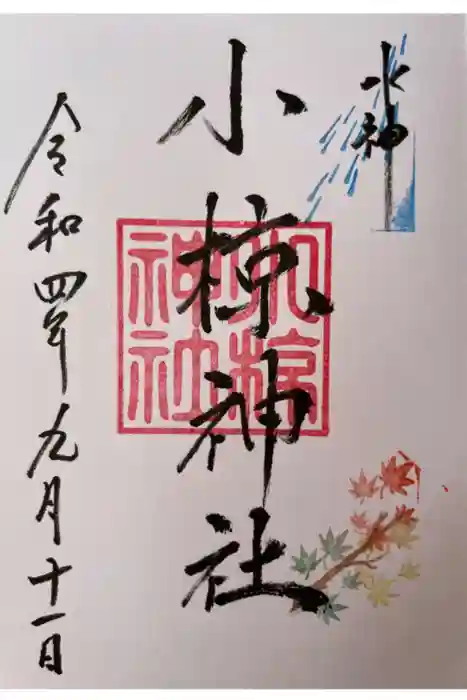 水神
小椋神社
小椋神社
令和四年九月十一日